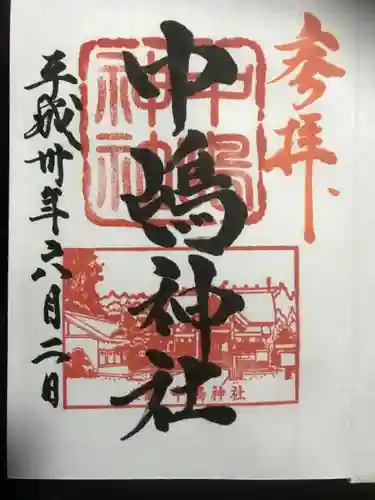 参拝
中嶋神社
平成卅年六月二日
中嶋神社
中嶋神社